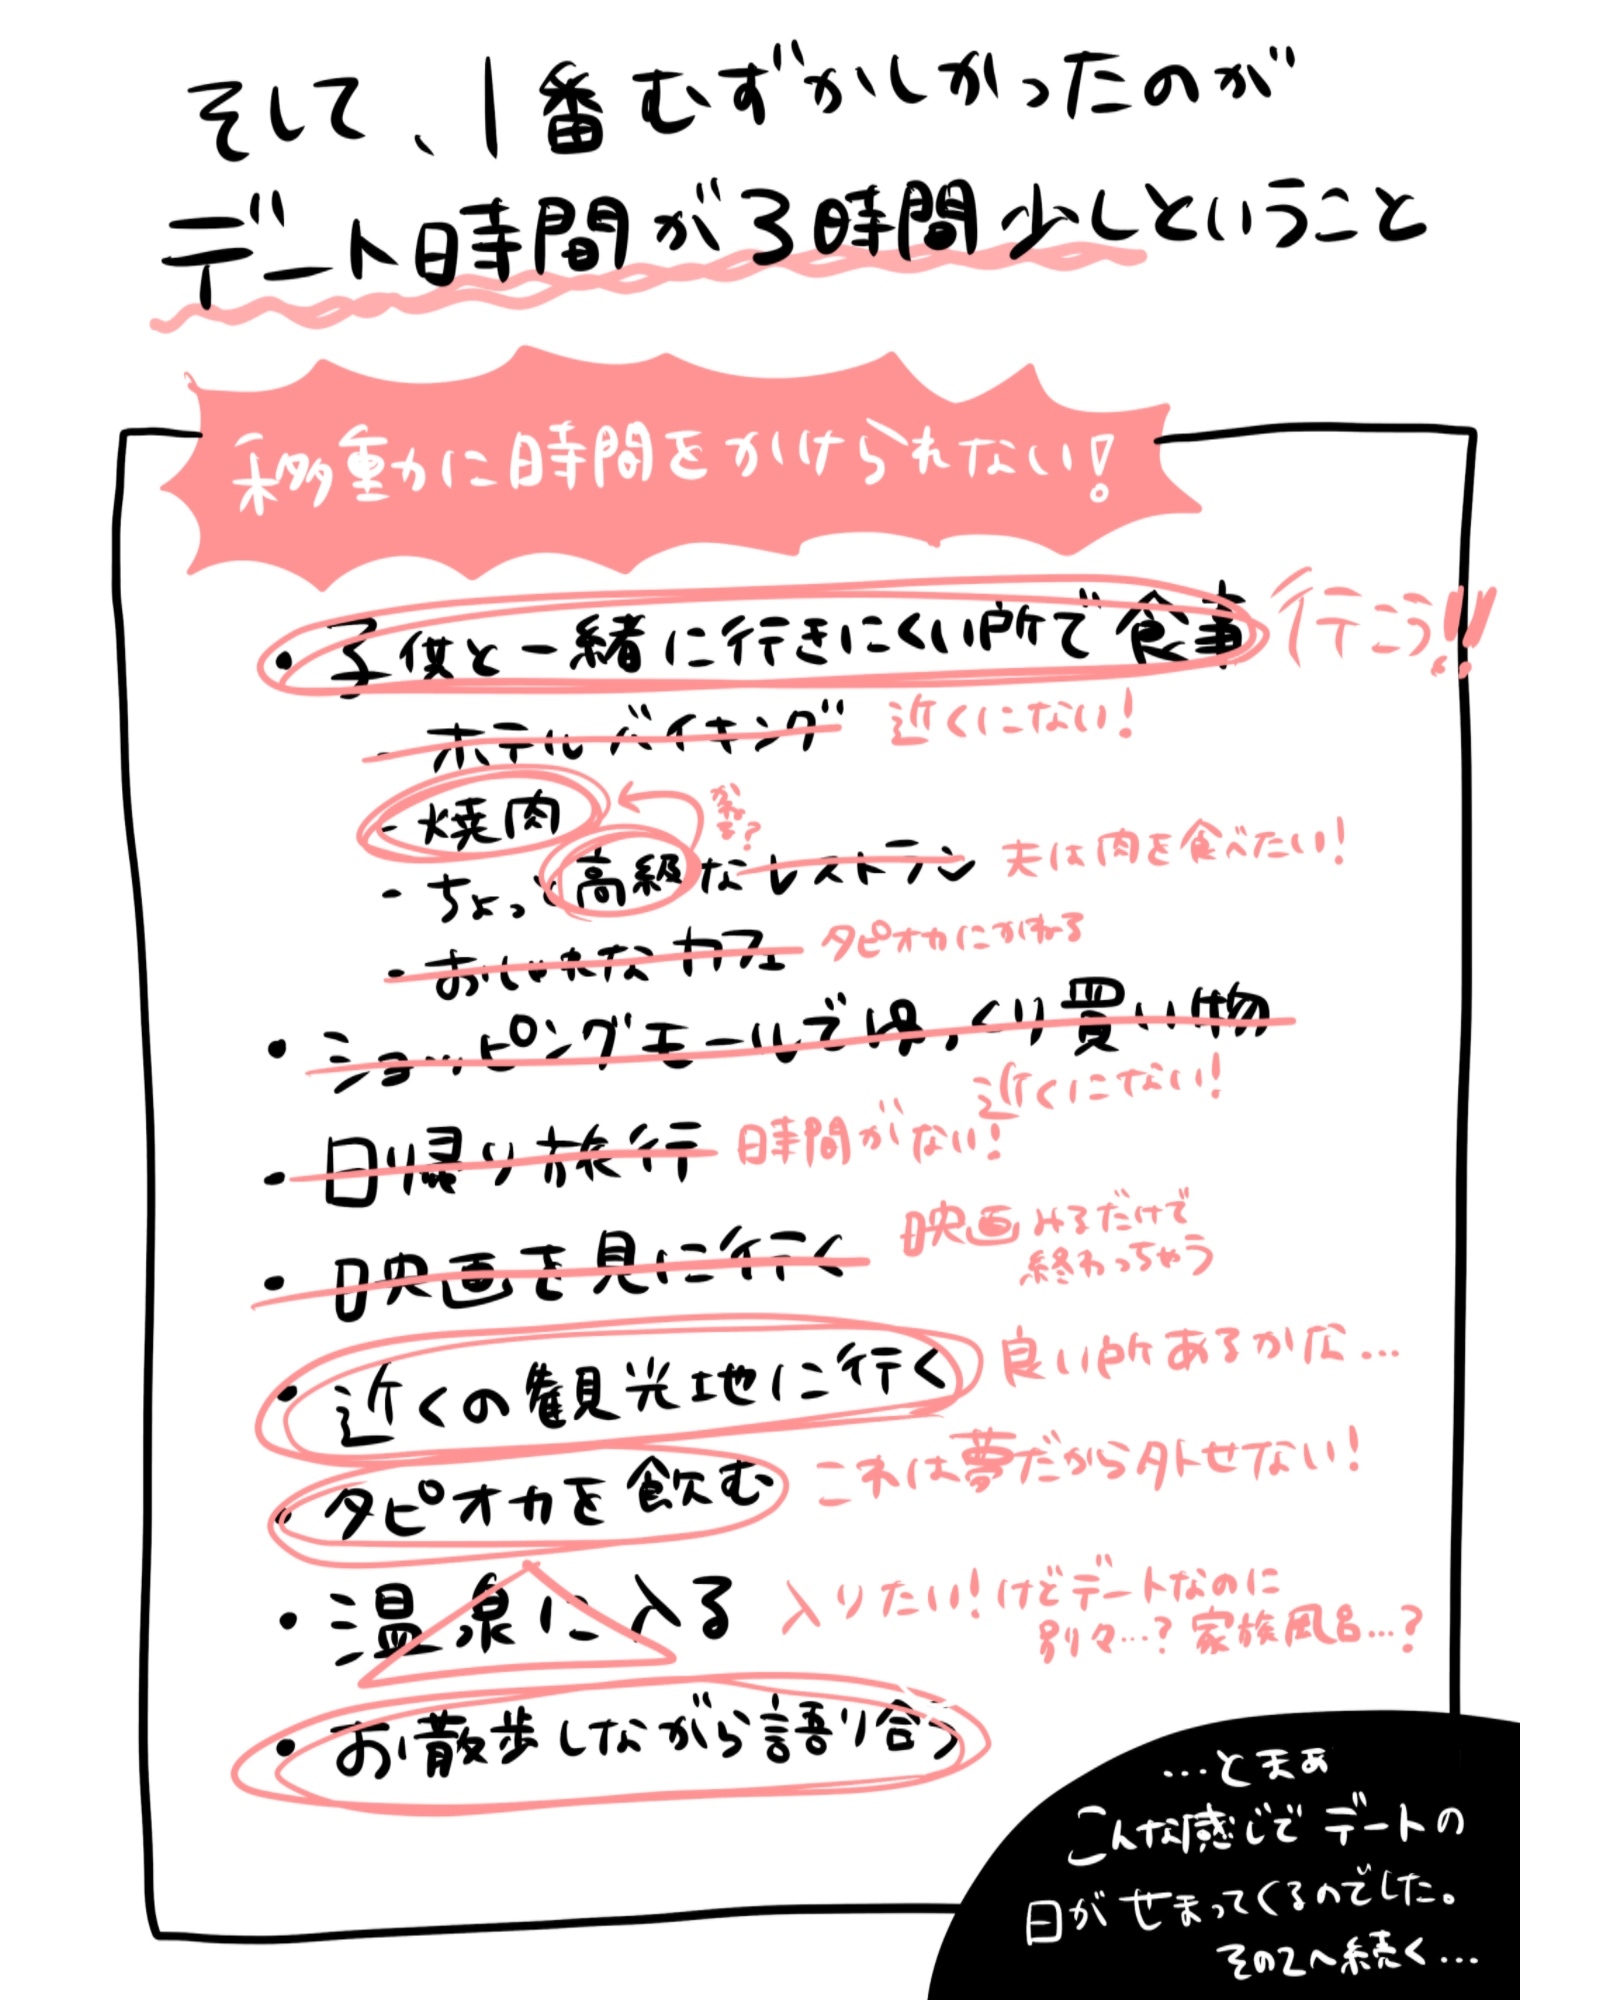 そして、1番むずかしかったのが
デート時間が3時間少しということ
移動に時間をかけられない!
・子供と一緒に行きにくい所で食事 行こう!!
- ホテルバイキング 近くにない!
- 焼肉
かねる?
- ちょっと高級なレストラン 夫は肉を食べたい!
- おしゃれなカフェ タピオカにかねる
・ショッピングモールでゆっくり買い物
近くにない!
・日帰り旅行 時間がない!
・映画を見に行く 映画みるだけで
終わっちゃう
・近くの観光地に行く 良い所あるかな…
・タピオカを飲む これは夢だから外せない!
・温泉に入る 入りたい!けどデートなのに
別々…?家族風呂…?
・お散歩しながら語り合う
…とまぁ
こんな感じでデートの
日がせまってくるのでした。
その2へ続く…